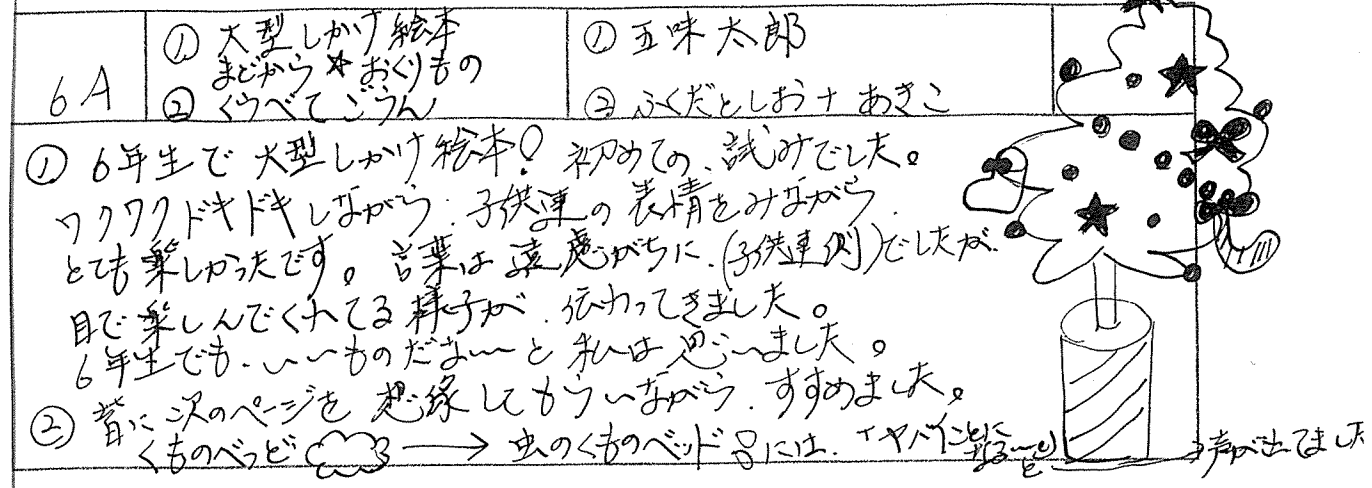 6A
① 大型しかけ絵本
まどから★おくりもの
② くうべて ごうん
① 五味太郎
② ふくだとしお+あきこ
① 6年生で大型しかけ絵本! 初めての、試みでした。
ワクワクドキドキしながら、子供達の表情をみながら、
とても楽しかったです。言葉は遠慮がちに、(子供達側)でしたが、
目で楽しんでくれてる様子が、伝わってきました。
6年生でも、いいものだなーと私は思いました。
② 皆に次のページを想像してもらいながら、すすめました。
くものべっど → 虫のくものベッドには、「ヤバイことになるー」と声が出てました